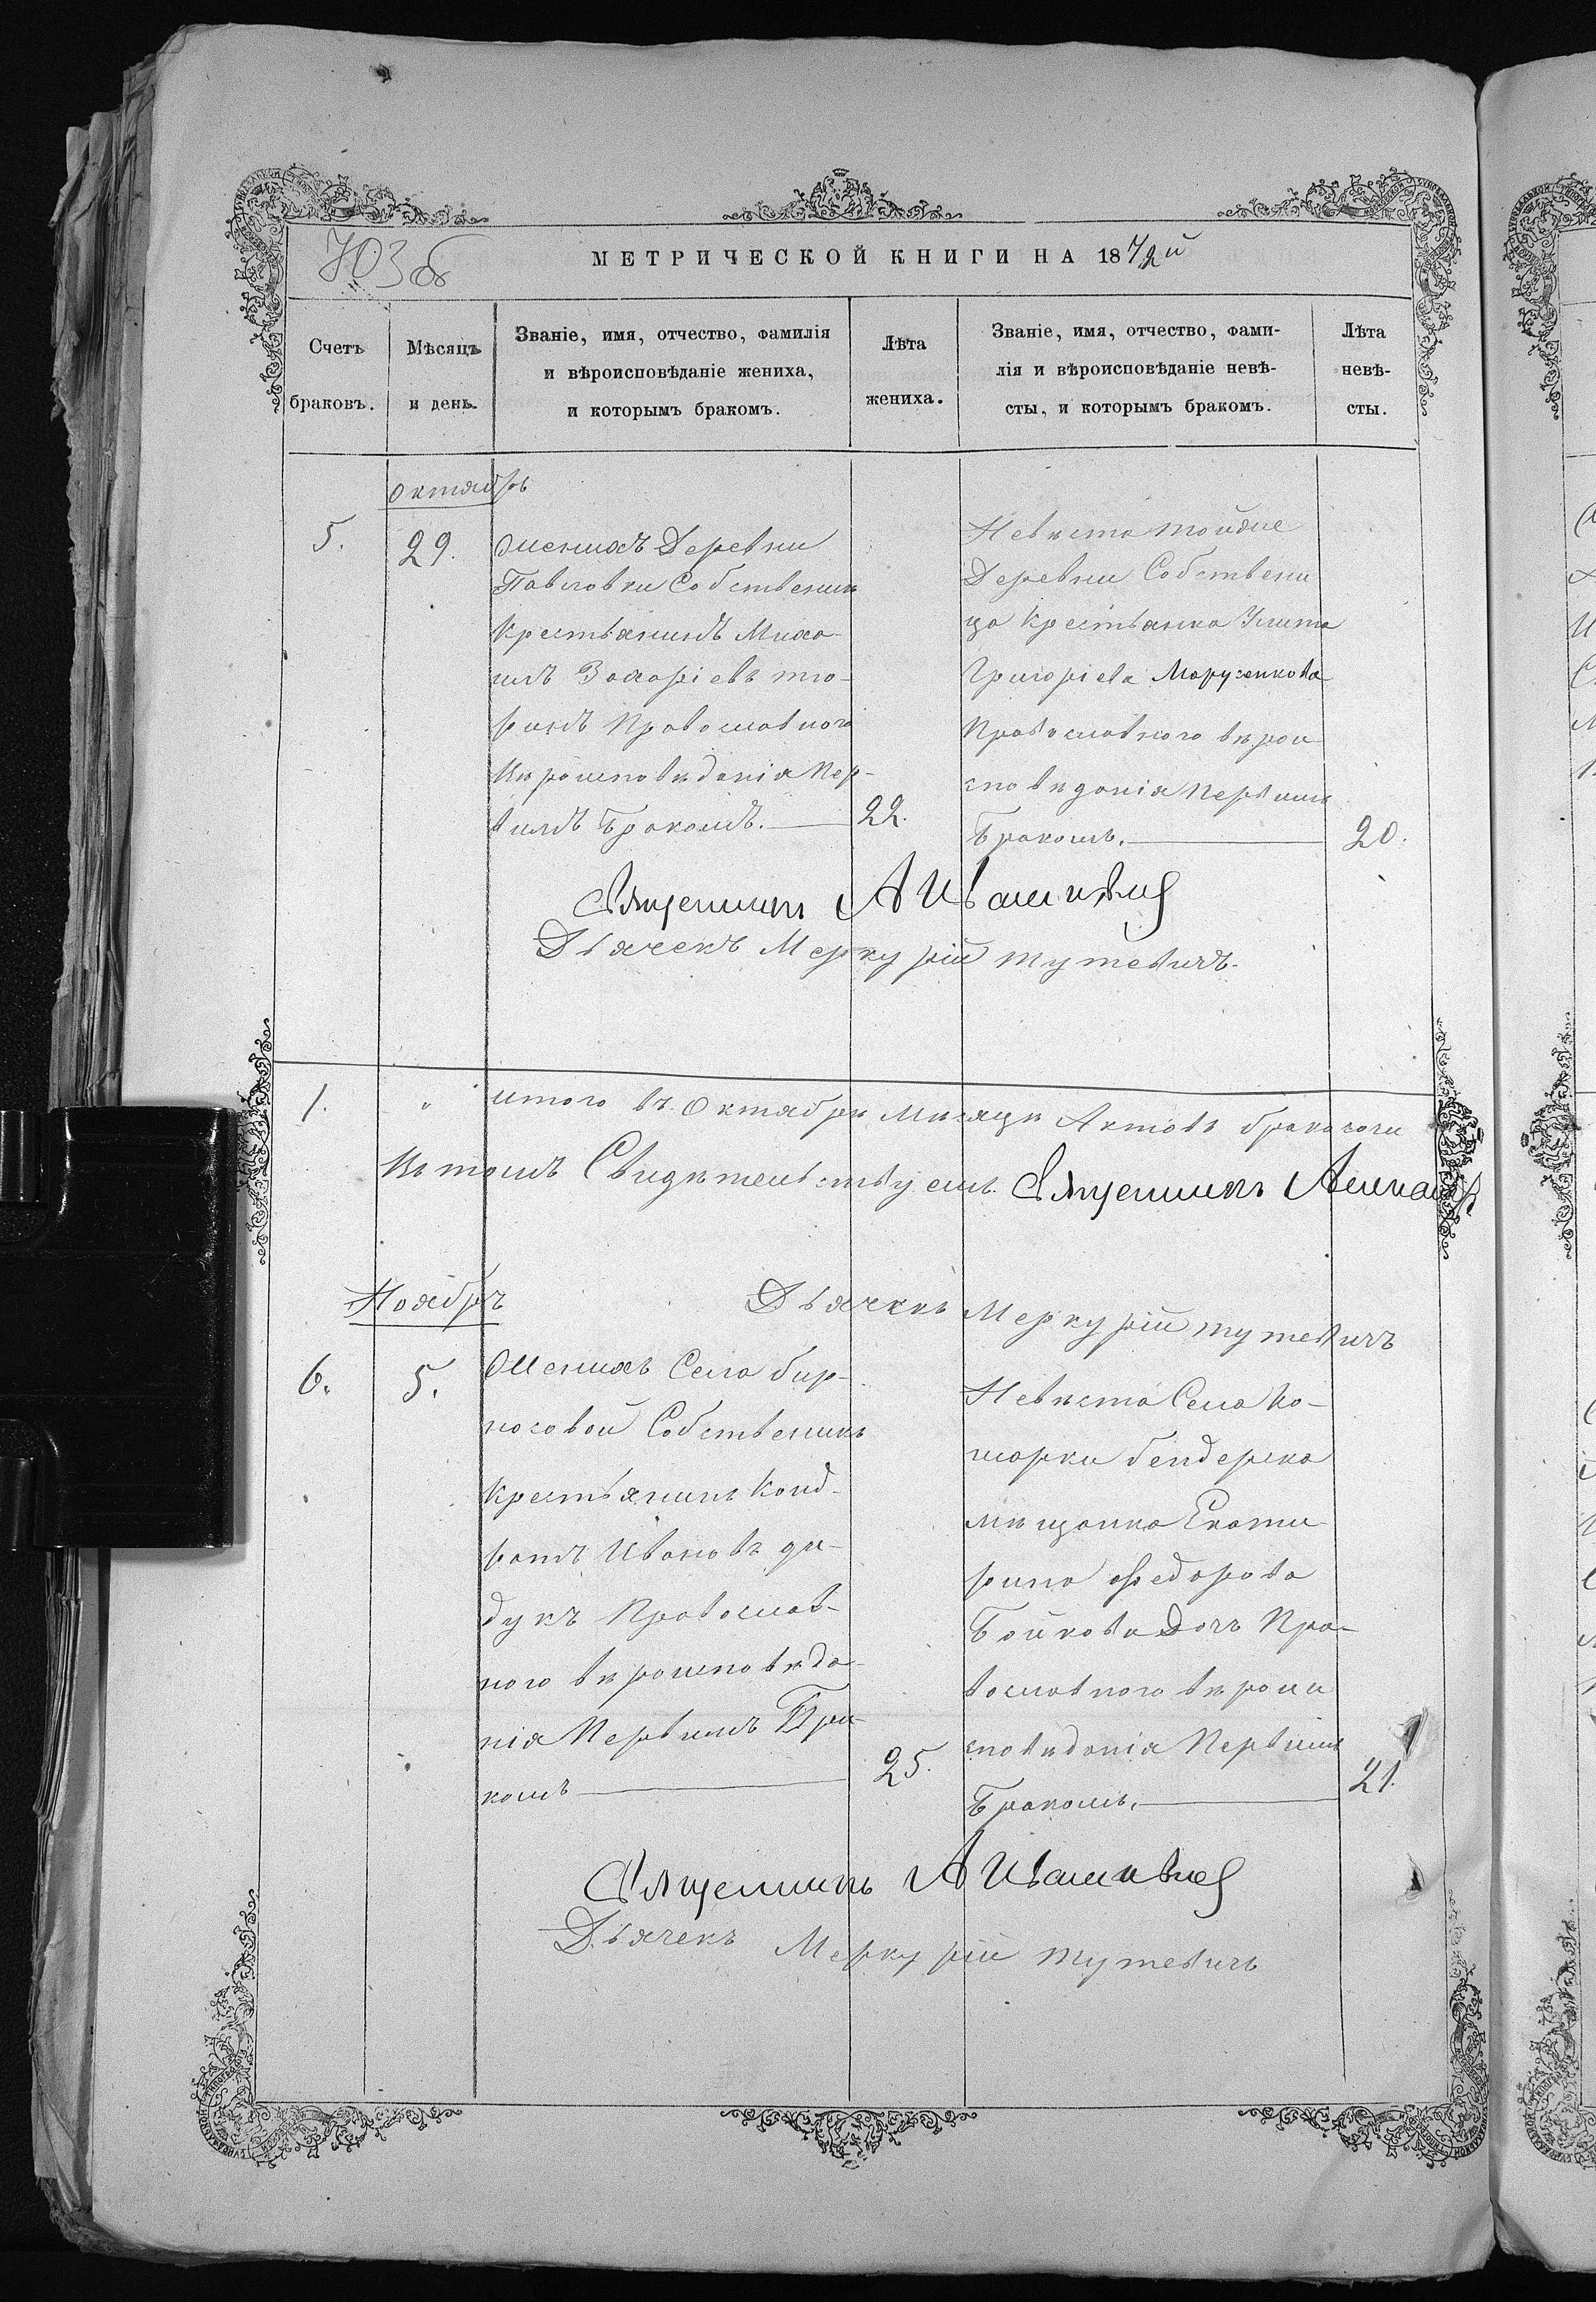 703 об
МЕТРИЧЕСКОЙ КНИГИ НА 1872й
Счетъ браковъ.
Мѣсяцъ и день.
Званіе, имя, отчество, фамилія
и вѣроисповѣданіе жениха,
и которымъ бракомъ.
Лѣта жениха.
Званіе, имя, отчество, фами-
лія и вѣроисповѣданіе невѣ-
сты, и которымъ бракомъ.
Лѣта невѣ-
сты.
Октябрь
5.
29.
Женихъ Деревни
Павловки Собственикъ
Крестьянинъ Миха-
илъ Захаріевъ тю-
ринъ Православного
Вѣроисповѣданія Пер-
вимъ Бракомъ.
22.
Невѣста тойже
Деревни Собствени
ца Крестьянка Улита
Григоріева Марученкова
Православного вѣрои
сповѣданія Первимъ
Бракомъ.
20.
Священникъ А
Дьячекъ Меркурій тутевичъ.
1. " итого въ Октябрѣ Мѣсяцѣ Актовъ брака
Въ томъ Свидѣтельствуемъ. Священникъ
Дьячекъ Меркурій тутевичъ
Ноябрь
6.
5.
Женихъ Села бир-
носовой Собственикъ
Крестьянинъ Конд-
ратъ Ивановъ ди-
дукъ Православ-
ного вѣроисповѣда-
нія Первимъ Бра-
комъ
25.
Невѣста Села Ко-
шарки бендерска
мѣщанка Екати
рина Федорова
Бойкова Дочъ Пра-
вославного вѣрои
сповѣданія Первимъ
Бракомъ.
21.
Священникъ А
Дьячекъ Меркурій тутевичъ